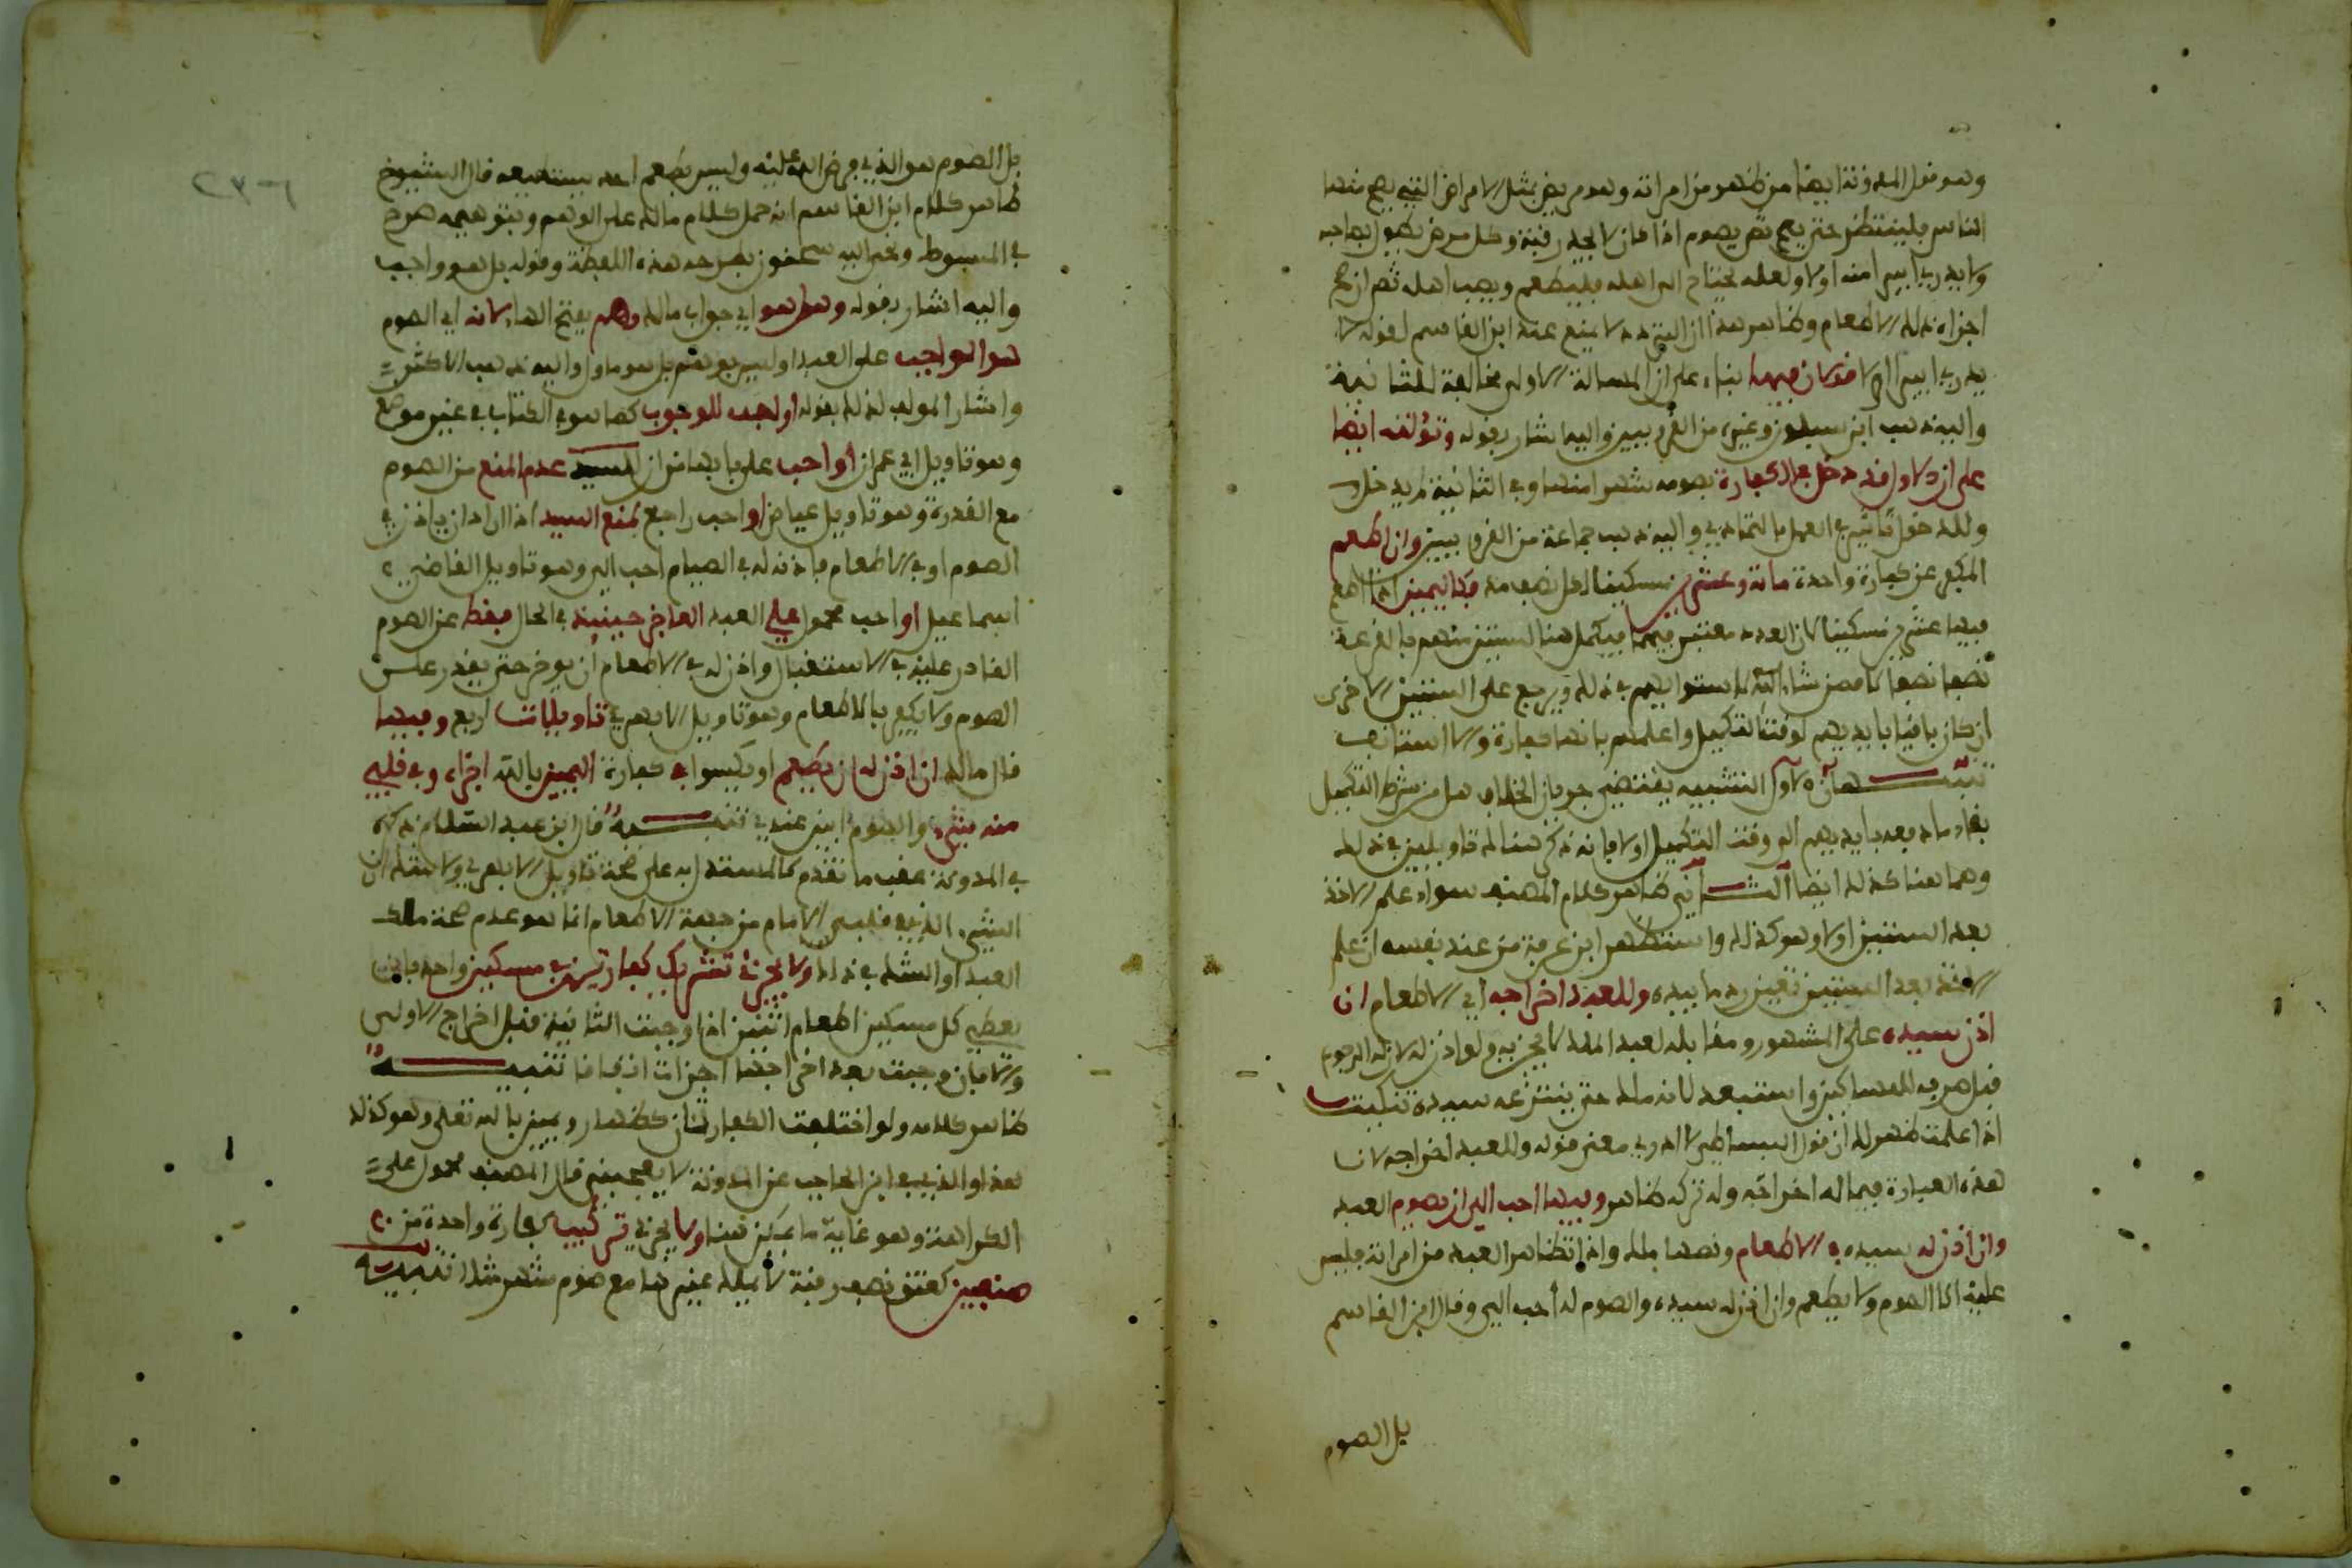 وهو قول المدونة ايضا من ظاهر من امراته وهو مريض بمثل الامراض التي يصح منها
الناس فلينتظر حتى يصح ثم يصوم اذا كان لا يجد رقبة وكل مرض يطول بصاحبه
ولا يدري ايبرا منه اولا ولعله يحتاج الى اهله فليطعم ويصب اهله ثم ان صح
اجزاه ذلك الاطعام وظاهر هذا ان التردد لا يمنع عند ابن القاسم لقوله لا
يدري ايبرا اولا قولان فيها بناء على ان المسالة الاولى مخالفة للثانية
واليه ذهب ابن سبلون وغيره من القرويين واليها شار بقوله وتؤلت ايضا
على ان الاول قد دخل في الكفارة بصومه شهرا منها وفي الثانية لم يدخل
وللدخول تاثير في العمل بالتمادي واليه ذهب جماعة من القرويين وان اطعم
المكفر عن كفارة واحدة ماية وعشرين مسكينا لكل نصف مد فكاليمين اذا اطعم
فيها عشرين مسكينا لان العدد معتبر فيهما فيكمل هنا لستين منهم بالقرعة
نصفا نصفا لا فمن شاء لاستوائهم في ذلك ويرجع على الستين الاخرى
ان كان باقيا بايديهم لوقت التكميل واعلمهم بانها كفارة والا استانف
تنبيهان الاول التشبيه يقتضي جريان الخلاف هل من شرط التكميل
بقاء ما دفعه بايديهم الى وقت التكميل اولا فانه ذكر هناك تاويلين في ذلك
وهما هنا كذلك ايضا الثاني ظاهر كلام المصنف سواء علم الاخذ
بعد الستين اولا وهو كذلك واستظهر ابن عرفة من عند نفسه ان علم
الاخذ بعد الستين تعين رد ما بيده وللعبد اخراجه اي الاطعام ان
اذن سيده على المشهور ومقابله لعبد الملك لا يجزيه ولو اذن له لان له الرجوع
قبل صرفه للمساكين واستبعد لانه ملك حتى ينتزعه سيده تنكيت
اذا علمت ظهر لك ان قول البساطي لا ادري معنى قوله وللعبد اخراجه لان
هذه العبارة فيما له اخراجه وله تركه ظاهر وفيها احب الي ان يصوم العبد
وان اذن له سيده في الاطعام ونصها ملك واذا تظاهر العبد من امراته فليس
عليه الا الصوم ولا يطعم وان اذن له سيده والصوم له احب الي وقال ابن القاسم
بل الصوم
بل الصوم هو الذي فرض الله عليه وليس يطعم احد يستطيعه قال الشيوخ
ظاهر كلام ابن القاسم انه حمل كلام مالك على الوهم وبتوهيمه صرح
في المبسوط ونحى اليه سحنون بطرحه هذه اللفظة وقوله بل هو واجب
واليه اشار بقوله وهل هو اي جواب مالك وهم بفتح الهاء لانه اي الصوم
هو الواجب على العبد او ليس بوهم بل هو ماول واليه ذهب الاكثر
واشار المولف لذلك بقوله او احب للوجوب كما هو في الكتاب في غير موضع
وهو تاويل ابي عمران او احب على بابها من ان للسيد عدم المنع من الصوم
مع القدرة وهو تاويل عياض او احب راجع لمنع السيد اذا اراد ان ياذن في
الصوم او في الاطعام فاذنه له في الصيام احب الي وهو تاويل القاضي
اسماعيل او احب محمول على العبد العاجز حينيذ في الحال فقط عن الصوم
القادر عليه في الاستقبال واذن له في الاطعام ان يوخر حتى يقدر على
الصوم ولا يكفر بالاطعام وهو تاويل الابهري تاويلات اربع وفيها
قال مالك ان اذن له ان يطعم او يكسوا في كفارة اليمين بالله اجزاه وفي قلبي
منه شيء والصوم ابين عندي تنبيه قال ابن عبد السلام ذكره
في المدونة عقب ما تقدم كالمستدل به على صحة تاويل الابهري ولا شك ان
الشيء الذي في قلب الامام من جهة الاطعام انما هو عدم صحة ملك
العبد او الشك في ذلك ولا يجزئ تشريك كفارتين في مسكين واحد فان
يعطي كل مسكين اطعام اثنين اذا وجبت الثانية قبل اخراج الاولى
والا فان وجبت بعد اخراجها اجزات اتفاقا تنبيه
ظاهر كلامه ولو اختلفت الكفارتان كظهار ويمين بالله تعلى وهو كذلك
هذا والذي في ابن الحاجب عن المدونة لا يعجبني قال المصنف محمول على
الكراهة وهو غاية ما يمكن هنا ولا يجزي تركيب كفارة واحدة من
صنفين كعتق نصف رقبة لا يملك غيرها مع صوم شهر مثلا تنبيه